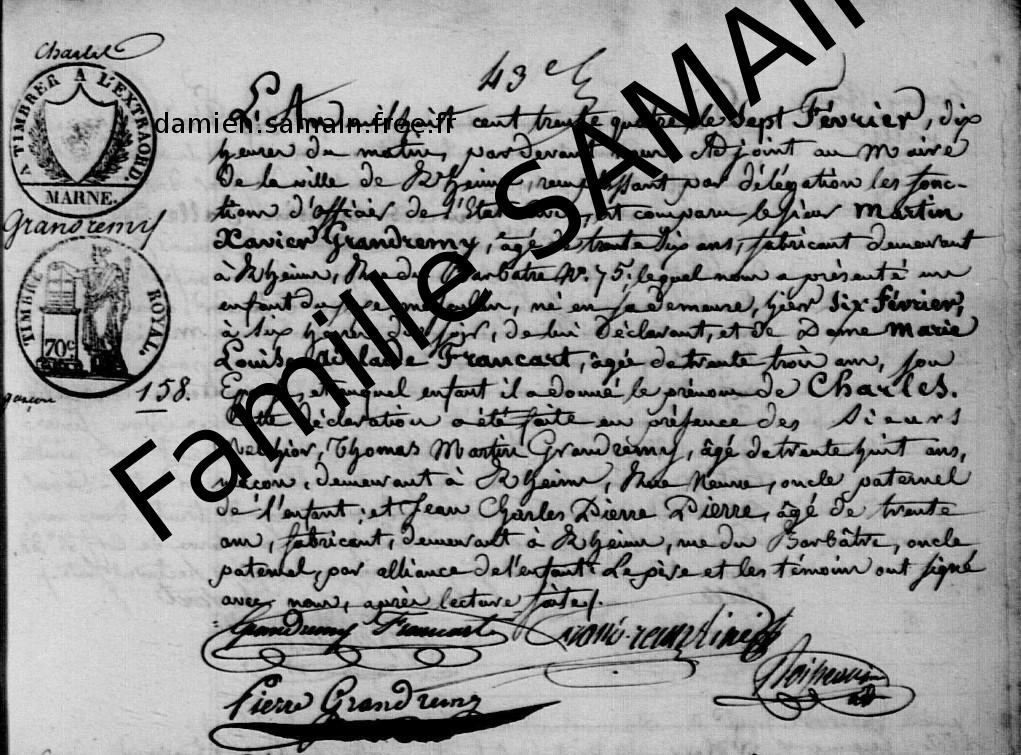 Charles
43e
A TIMBRER A L'EXTRAORD.
MARNE.
damien.samain.free.fr
Famille SAMAIN
L'An mil huit cent trente quatre, le Sept Février, dix
heures du matin, pardevant nous Adjoint au Maire
de la ville de Rheims, remplissant par délégation les fonc-
tions d'officier de l'Etat civil, est comparu le sieur Martin
Grandremy
Xavier Grandremy, âgé de trente six ans, fabricant demeurant
à Rheims, Rue du Barbatre No. 75, lequel nous a présenté un
enfant du sexe masculin, né en sa demeure, hier six février,
TIMBRE ROYAL.
70c
à six heures du soir, de lui déclarant, et de Dame Marie
Louise Adelaide Francart, âgée de trente trois ans, son
garçon
158.
Epouse, et auquel enfant il a donné le prénom de Charles.
Cette déclaration a été faite en présence des Sieurs
Melchior, Thomas Martin Grandremy, âgé de trente huit ans,
macon, demeurant à Rheims, Rue Neuve, oncle paternel
de l'enfant, et Jean Charles Pierre Pierre, âgé de trente
ans, fabricant, demeurant à Rheims, rue du Barbâtre, oncle
paternel, par alliance de l'enfant. Le père et les témoins ont signé
avec nous, après lecture faite.
Grandremy Francart
Pierre Grandremy